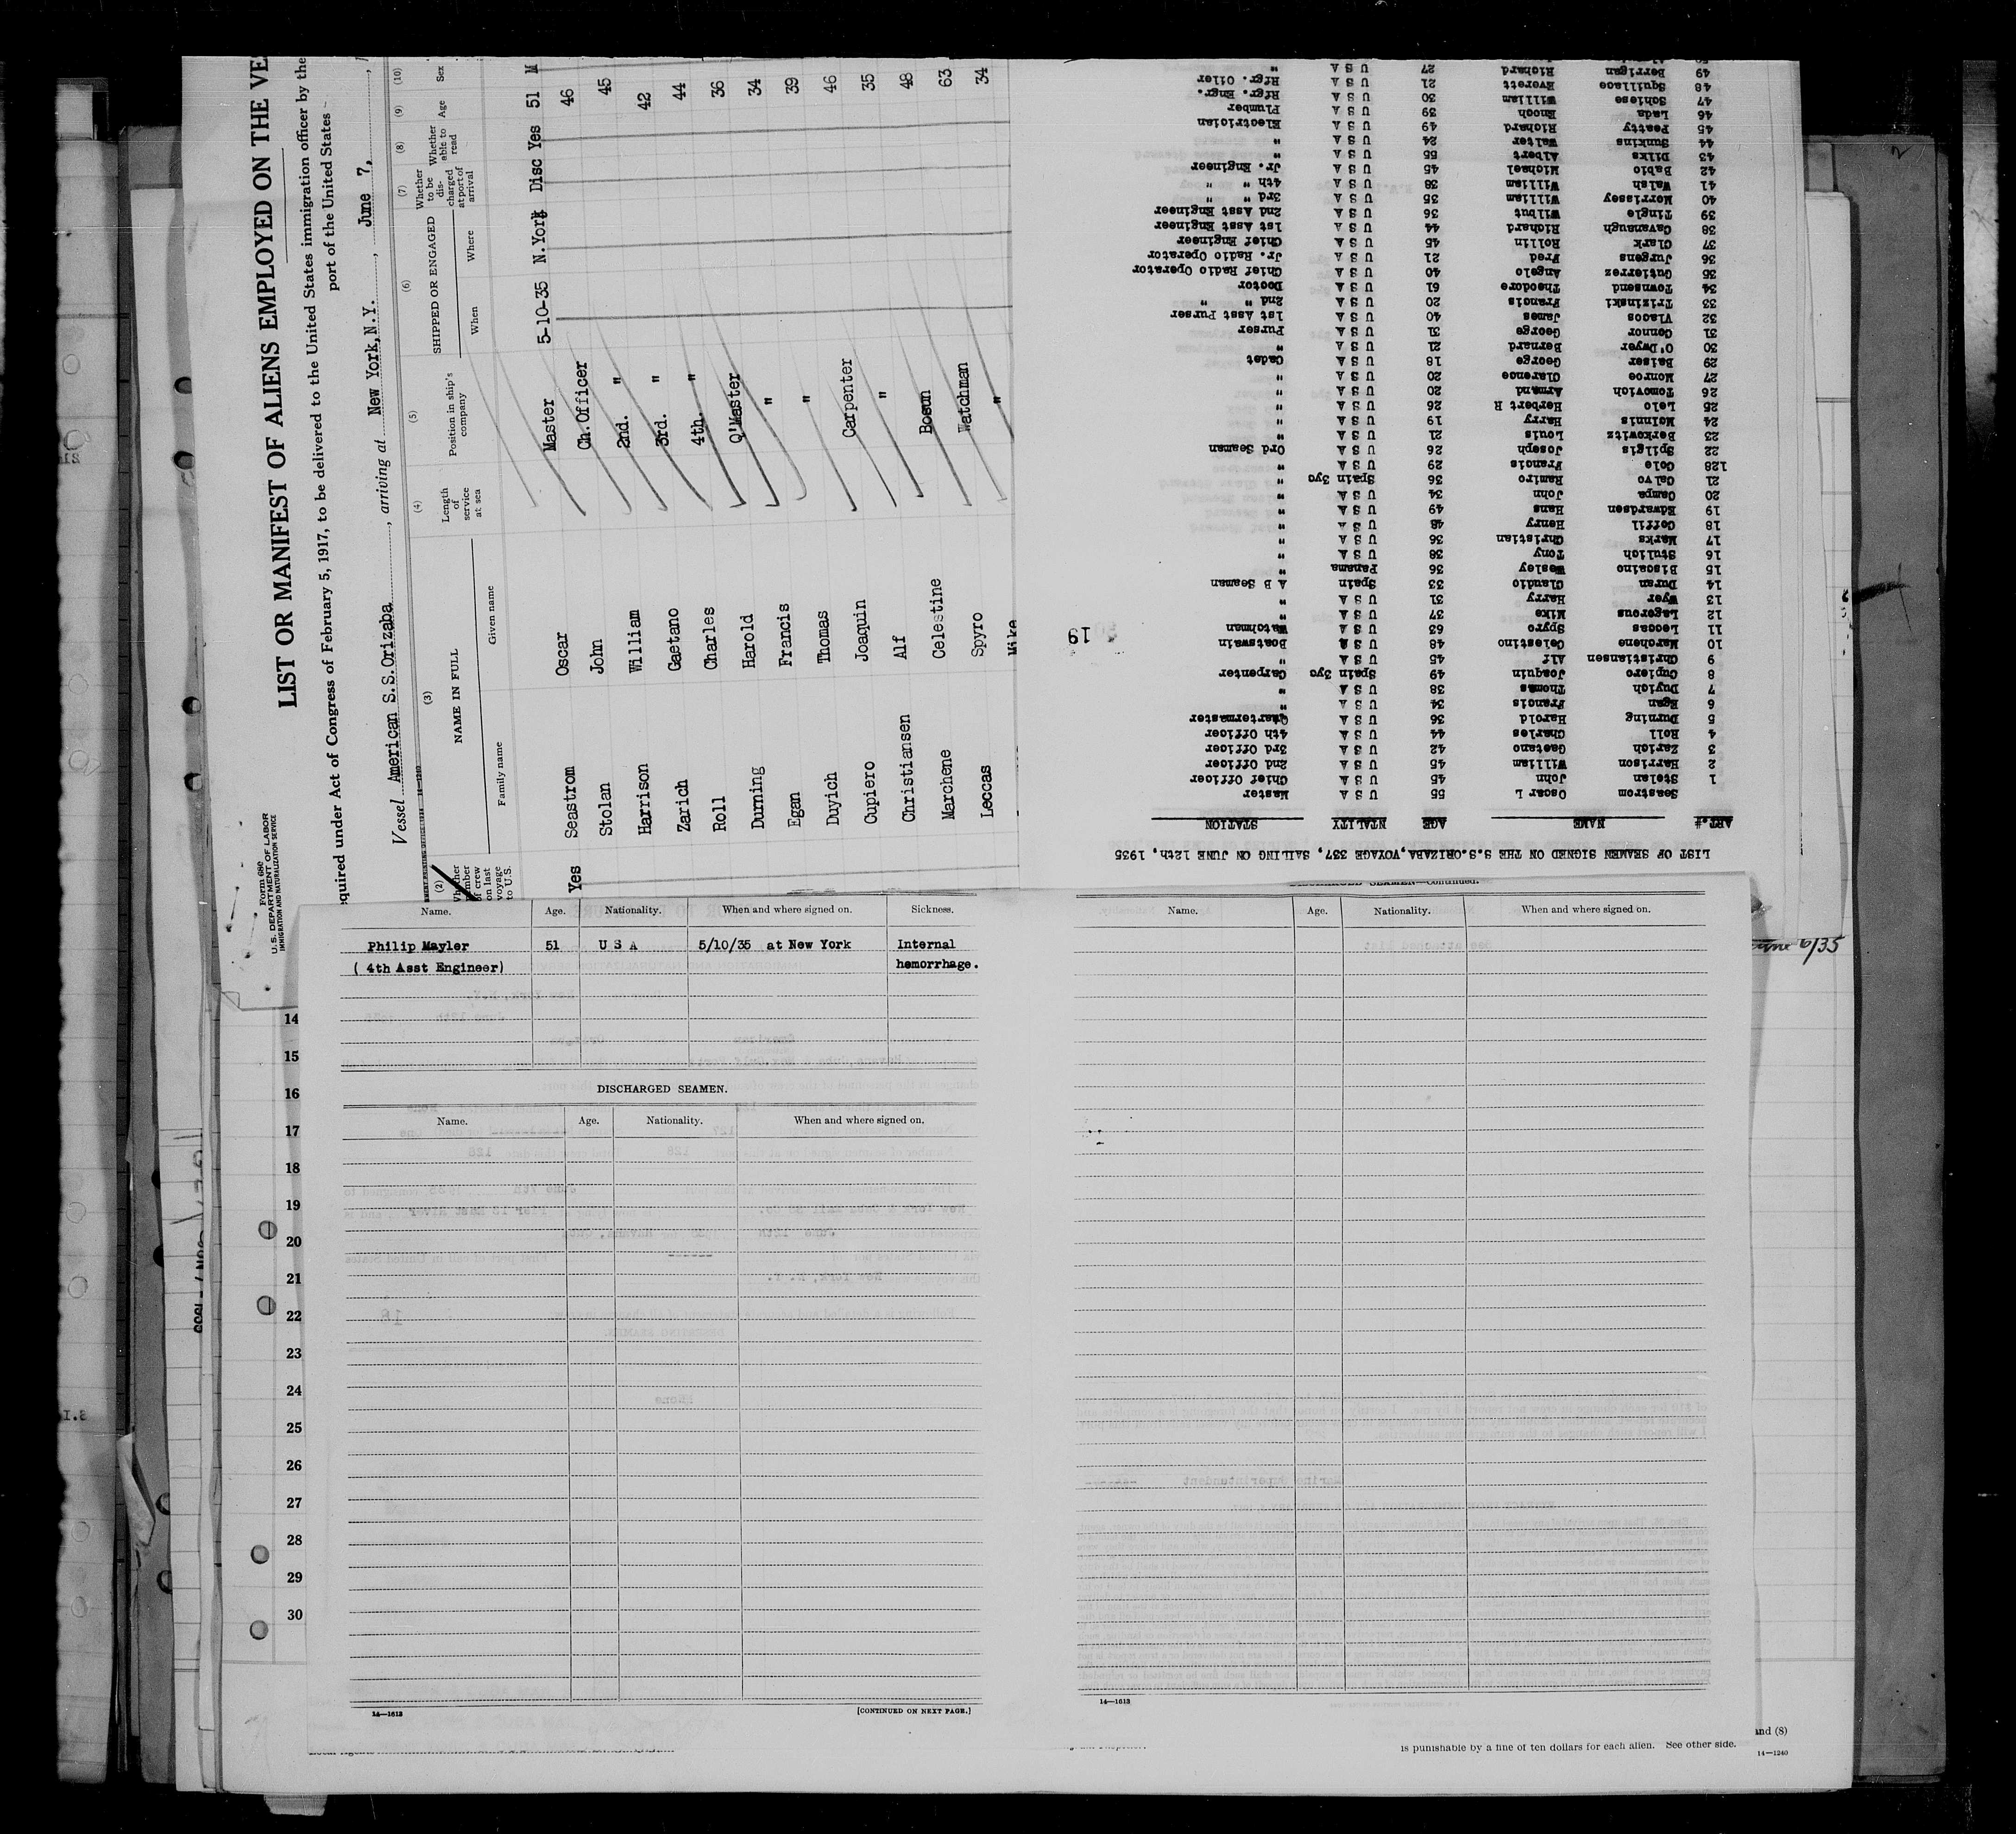 Form 686
U. S. DEPARTMENT OF LABOR
IMMIGRATION AND NATURALIZATION SERVICE
LIST OR MANIFEST OF ALIENS EMPLOYED ON THE VE
equired under Act of Congress of February 5, 1917, to be delivered to the United States immigration officer by the
port of the United States
Vessel American S.S.Orizaba, arriving at New York,N.Y., June 7,
(2) (3) (4) (5) (6) (7) (8) (9) (10)
NAME IN FULL Length of service at sea Position in ship's company SHIPPED OR ENGAGED Whether to be discharged at port of arrival Whether able to read Age Sex
Family name Given name When Where
Yes Seastrom Oscar Master 5-10-35 N.York Disc Yes 51 M
Stolan John Ch.Officer 46
Harrison William 2nd. " 45
Zarich Gaetano 3rd. " 42
Roll Charles 4th. " 44
Durning Harold Q'Master 36
Egan Francis " 34
Duyich Thomas " 39
Cupiero Joaquin Carpenter 46
Christiansen Alf " 35
Marchene Celestine Bosun 48
Leccas Spyro Watchman 63
Mike " 34
LIST OF SEAMEN SIGNED ON THE S.S.ORIZABA,VOYAGE 337, SAILING ON JUNE 12th, 1935
ART.# NAME AGE NTALITY STATION
Seastrom Oscar L 55 U S A Master
1 Stolan John 45 U S A Chief Officer
2 Harrison William 45 U S A 2nd Officer
3 Zarich Gaetano 42 U S A 3rd Officer
4 Roll Charles 44 U S A 4th Officer
5 Durning Harold 36 U S A Quartermaster
6 Egan Francis 34 U S A "
7 Duyich Thomas 38 U S A "
8 Cupiero Joaquin 49 Spain 3yc Carpenter
9 Christiansen Alf 45 U S A "
10 Marchene Celestino 48 U S A Boatswain
11 Leccas Spyro 63 U S A Watchman
12 Lagerous Mike 37 U S A "
13 Wyer Harry 31 U S A "
14 Duran Claudio 33 Spain A B Seaman
15 Biscaino Wesley 36 Panama "
16 Stulich Tony 38 U S A "
17 Marks Christian 36 U S A "
18 Coffil Henry 48 U S A "
19 Edwardsen Hans 49 U S A "
20 Campa John 34 U S A "
21 Calvo Ramiro 36 Spain 3yc "
128 Cole Francis 29 U S A "
22 Spilgis Joseph 26 U S A Ord Seaman
23 Berkowitz Louis 21 U S A "
24 McInnis Harry 19 U S A "
25 Lelo Herbert R 26 U S A "
26 Tomovich Armand 20 U S A "
27 Monroe Clarence 20 U S A "
29 Balser George 18 U S A Cadet
30 O'Dwyer Bernard 21 U S A "
31 Connor George 31 U S A Purser
32 Vlacos James 40 U S A 1st Asst Purser
33 Trizinski Francis 20 U S A 2nd " "
34 Townsend Theodore 61 U S A Doctor
35 Gutierrez Angelo 40 U S A Chief Radio Operator
36 Jurgens Fred 21 U S A Jr. Radio Operator
37 Clark Rollin 45 U S A Chief Engineer
38 Cavanaugh Richard 44 U S A 1st Asst Engineer
39 Tingle Wilbut 36 U S A 2nd Asst Engineer
40 Morrissey William 35 U S A 3rd " "
41 Walsh William 38 U S A 4th " "
42 Babio Michael 45 U S A Jr. Engineer
43 Dilks Albert 55 U S A "
44 Sunkins Walter 24 U S A "
45 Peatty Richard 49 U S A Electrician
46 Lada Enoch 39 U S A Plumber
47 Schiese William 30 U S A Rfgr. Engr.
48 Squillace Everett 21 U S A Rfgr. Oiler
49 Berrigan Richard 27 U S A "
19
Name. Age. Nationality. When and where signed on. Sickness.
Philip Mayler 51 U S A 5/10/35 at New York Internal
( 4th Asst Engineer) hemorrhage.
DISCHARGED SEAMEN.
Name. Age. Nationality. When and where signed on.
14—1613 [CONTINUED ON NEXT PAGE.]
DISCHARGED SEAMEN—Continued.
Name. Age. Nationality. When and where signed on.
14—1613
14
15
16
17
18
19
20
21
22
23
24
25
26
27
28
29
30
June 6/35
and (8)
is punishable by a fine of ten dollars for each alien. See other side.
14—1240